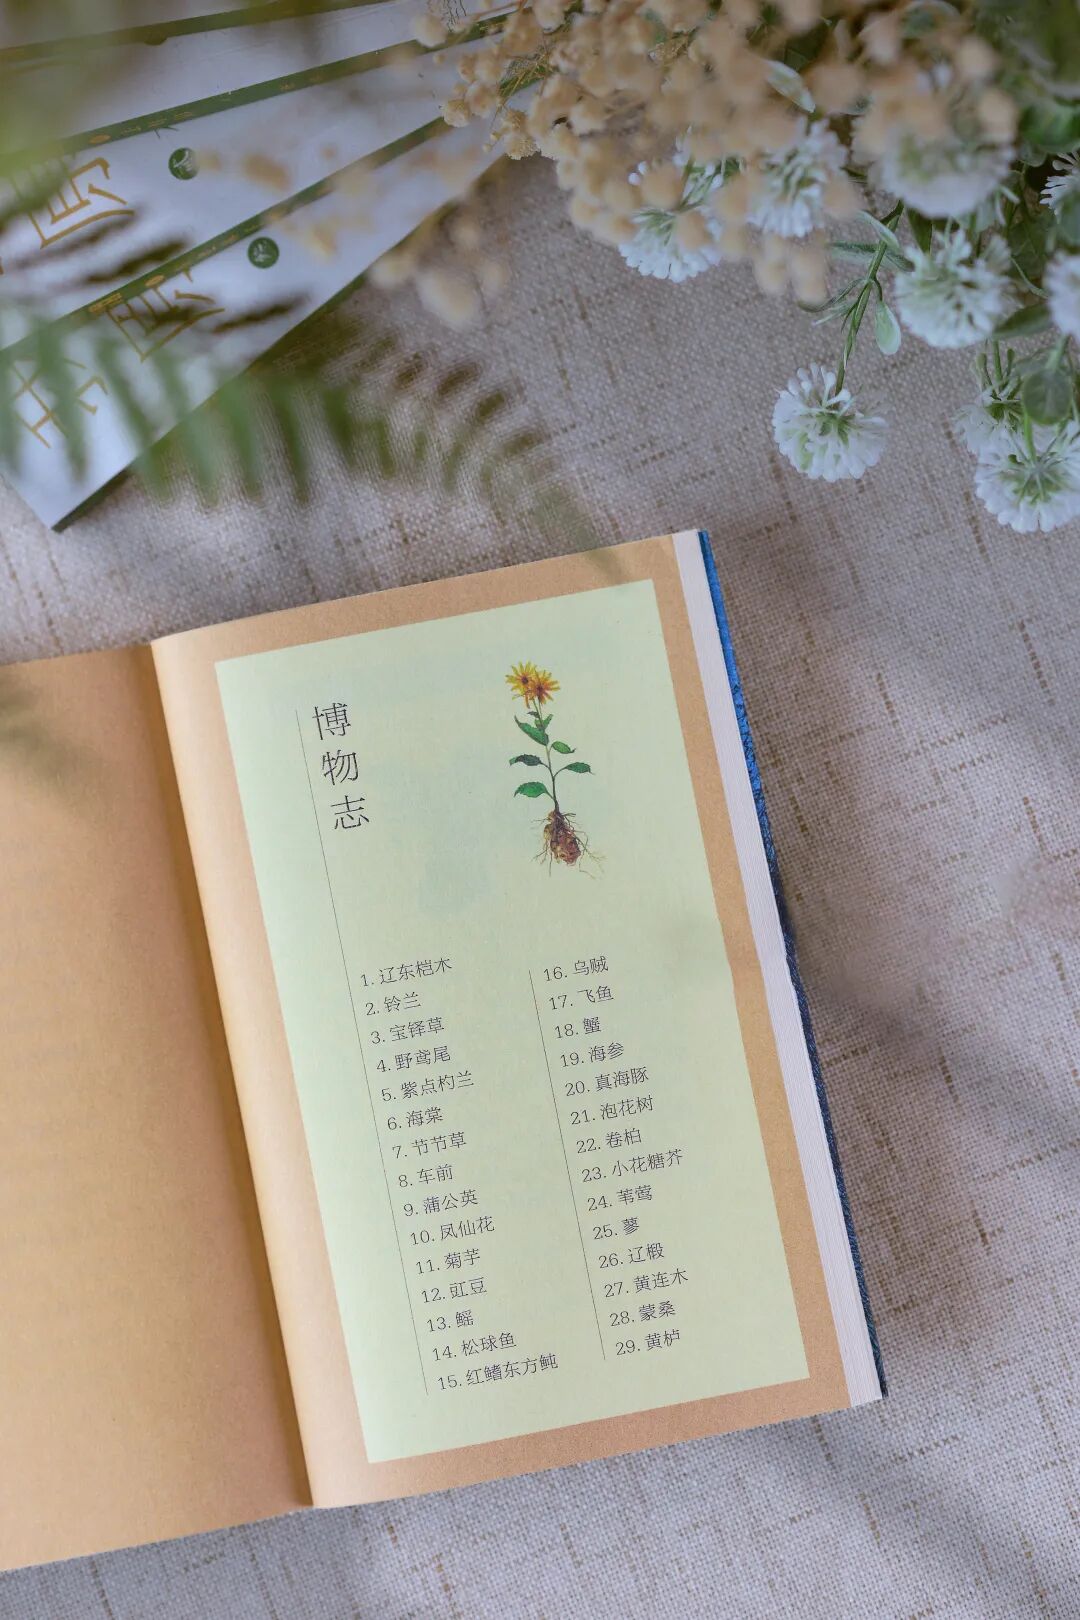 博物志
1. 辽东桤木
2. 铃兰
3. 宝铎草
4. 野鸢尾
5. 紫点杓兰
6. 海棠
7. 节节草
8. 车前
9. 蒲公英
10. 凤仙花
11. 菊芋
12. 豇豆
13. 鳐
14. 松球鱼
15. 红鳍东方鲀
16. 乌贼
17. 飞鱼
18. 蟹
19. 海参
20. 真海豚
21. 泡花树
22. 卷柏
23. 小花糖芥
24. 苇莺
25. 蓼
26. 辽椴
27. 黄连木
28. 蒙桑
29. 黄栌